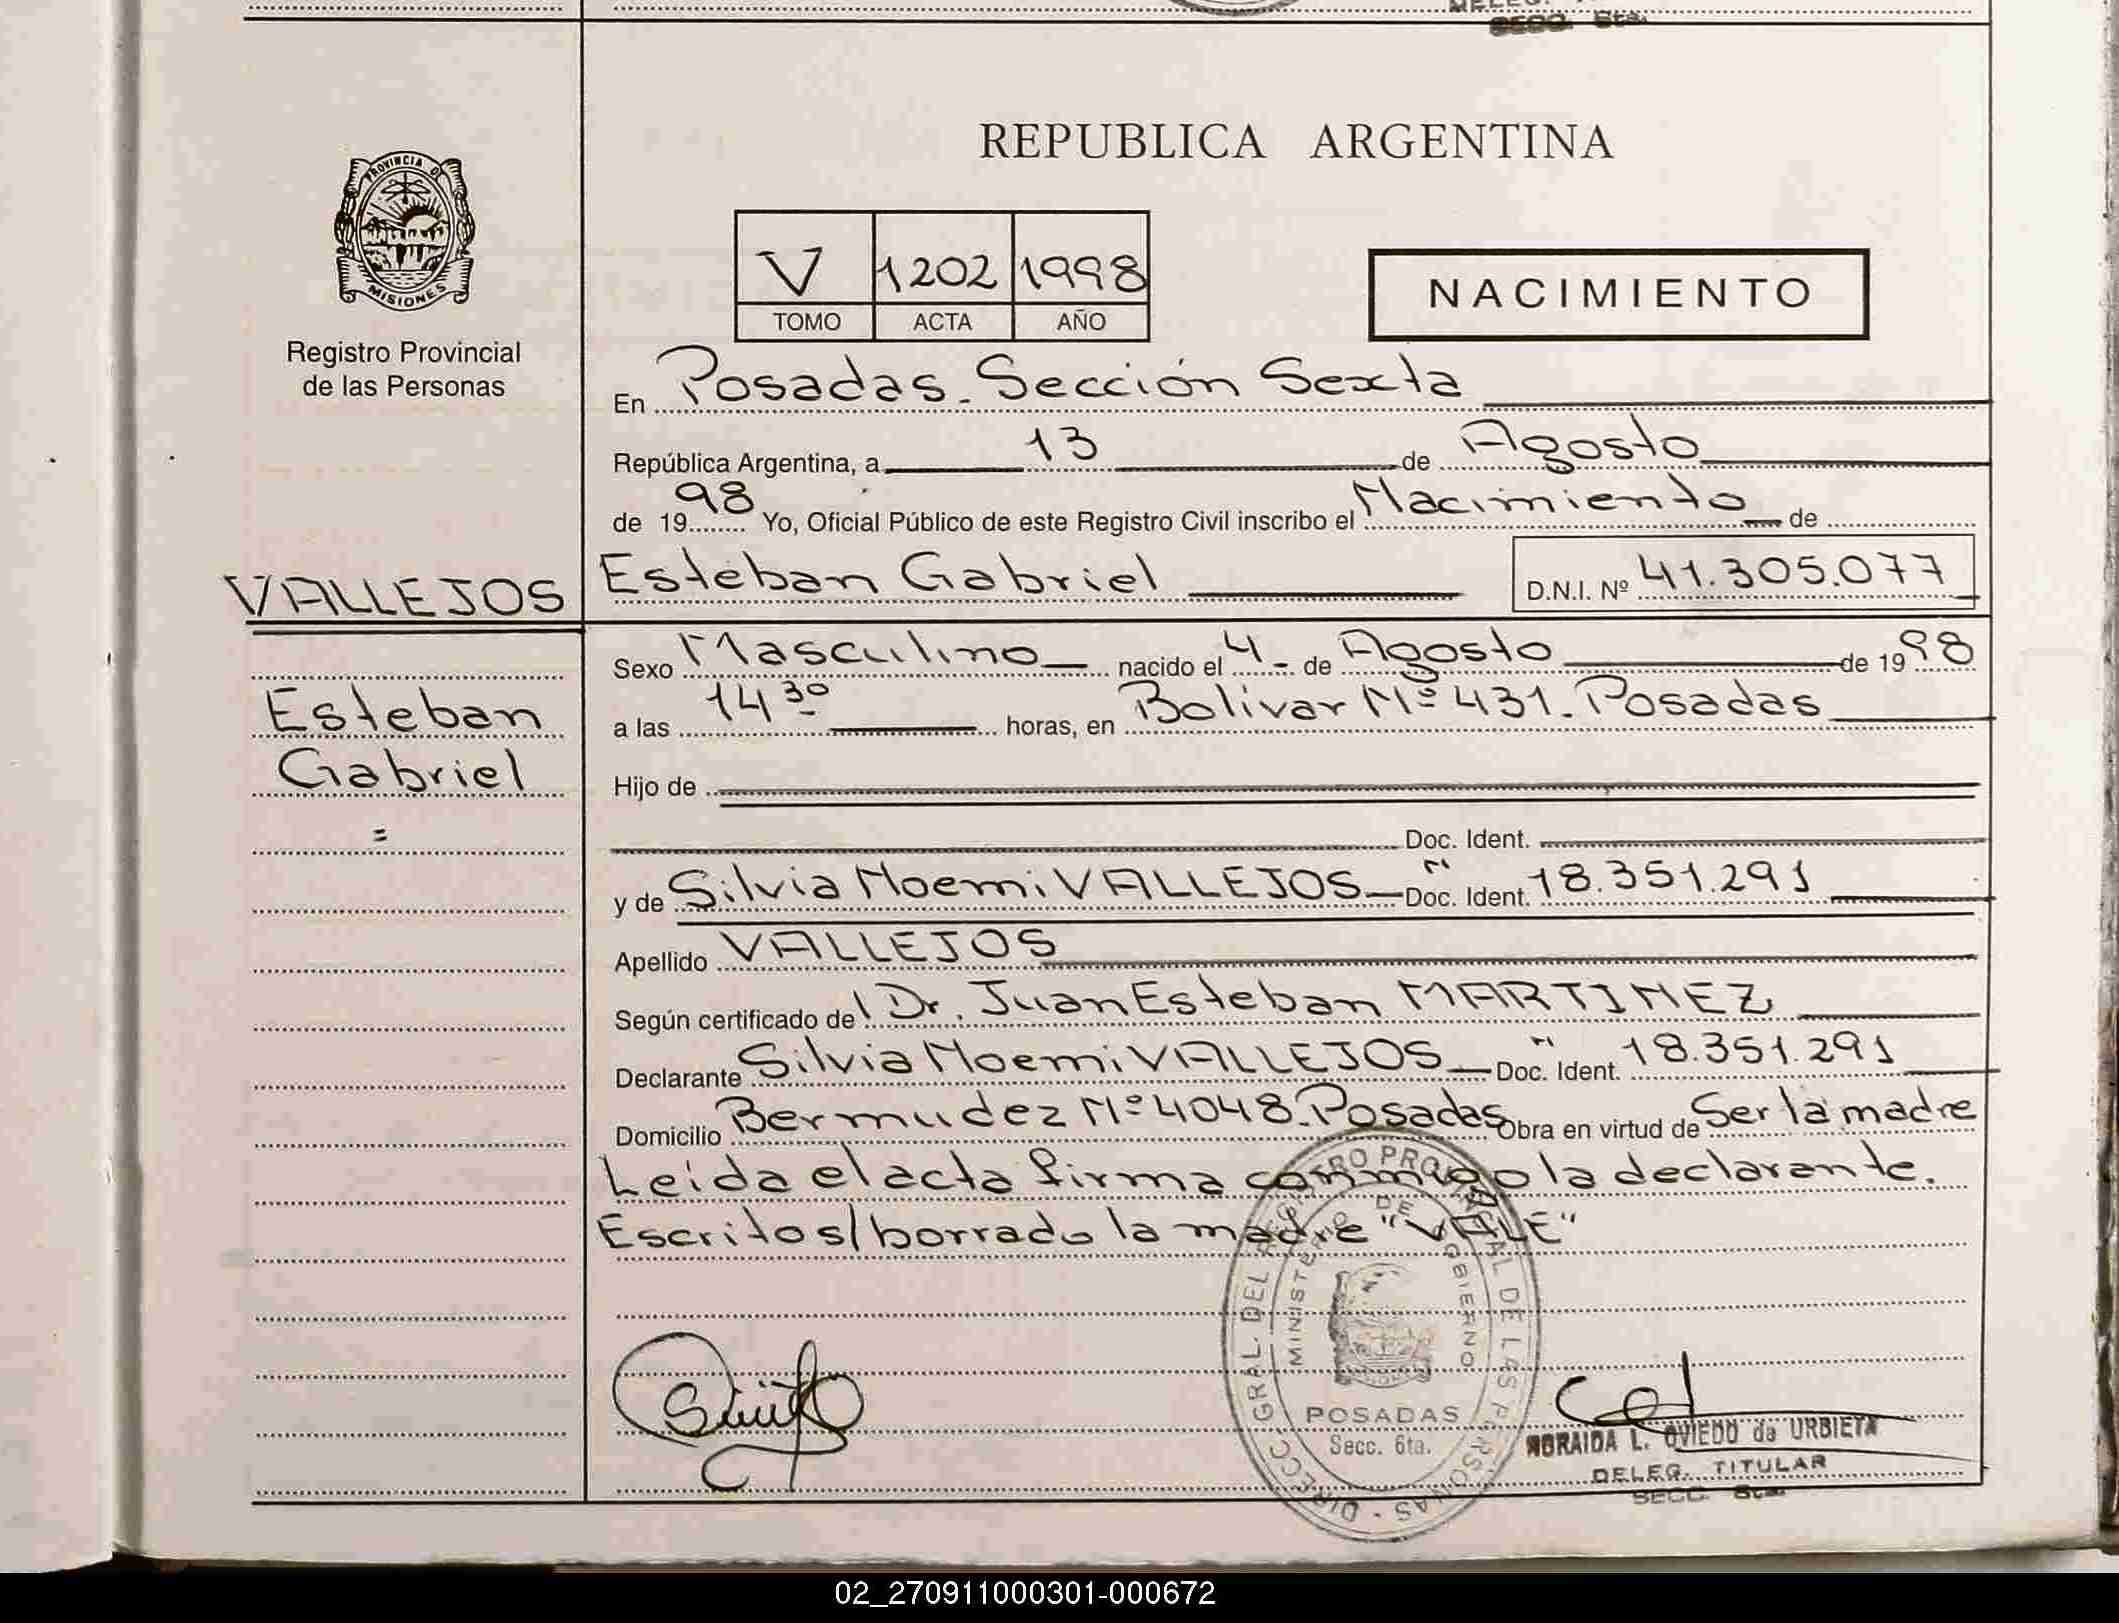 SECC. 6ta.
REPUBLICA ARGENTINA
PROVINCIA DE
MISIONES
Registro Provincial
de las Personas
V 1202 1998
TOMO ACTA AÑO
NACIMIENTO
En Posadas. Sección Sexta
República Argentina, a 13 de Agosto
de 1998 Yo, Oficial Público de este Registro Civil inscribo el Nacimiento de
VALLEJOS
Esteban Gabriel D.N.I. Nº 41.305.077
Sexo Masculino nacido el 4 de Agosto de 1998
Esteban
Gabriel
a las 14 30 horas, en Bolivar Nº 431. Posadas
Hijo de
Doc. Ident.
y de Silvia Noemi VALLEJOS Doc. Ident. 18.351.291
Apellido VALLEJOS
Según certificado de l Dr. Juan Esteban MARTINEZ
Declarante Silvia Noemi VALLEJOS Doc. Ident. 18.351.291
Domicilio Bermudez Nº 4048. Posadas Obra en virtud de Ser la madre
Leída el acta firma conmigo la declarante.
Escrito s/ borrado la madre "VALE"
DIRECC. GRAL. DEL REGISTRO PROVINCIAL DE LAS PERSONAS
MINISTERIO DE GOBIERNO
POSADAS
Secc. 6ta.
NORAIDA L. OVIEDO de URBIETA
DELEG. TITULAR
SECC. 6ta.
02_270911000301-000672